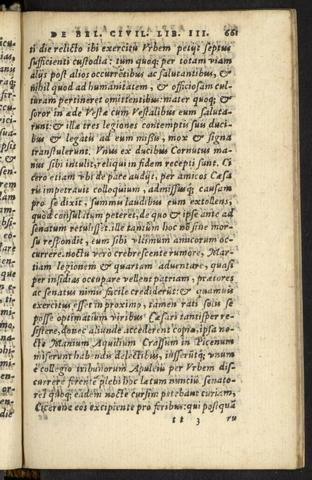 DE BEL. CIVIL. LIB. III. 661
ti die relicto ibi exercitu Vrbem petijt septus
sufficienti custodia: tum quoq; per totam viam
alijs post alios occurrẽtibus ac salutantibus, &
nihil quod ad humanitatem, & officiosam cul
turam pertineret omittentibus: mater quoq; &
soror in æde Vestæ cum Vestalibus eum saluta-
runt: & illæ tres legiones contemptis suis duci-
bus & legatis ad eum missis, mox & signa
transtulerunt. Vnus ex ducibus Cornutus ma-
nus sibi intulit, reliqui in fidem recepti sunt. Ci
cero etiam vbi de pace audijt, per amicos Cæsa
ris impetrauit colloquium, admissusq; causam
pro se dixit, summis laudibus eum extollens,
quòd consulatum peteret, de quo & ipse ante ad
senatum retulisset. ille tantùm hoc nõ sine mor-
su respondit, eum sibi vltimum amicorum oc-
currere. noctu verò crebrescente rumore, Mar-
tiam legionem & quartam aduentare, quasi
per insidias occupare vellent patriam, prætores
ac senatus nimis facile crediderũt: & quamuis
exercitus esset in proximo, tamen rati solis se
posse optimatium viribus Cæsari tantisper re-
sistere, donec aliunde accederent copiæ, ipsa no-
cte Manium Aquilium Crassum in Picenum
miserunt habendis delectibus, iusserũtq; vnum
è collegio tribunorum Apuleiũ per Vrbem dis-
currere ferente plebi hoc lætum nunciũ senato-
res quoq; eadem nocte cursim petebant curiam,
Cicerone eos excipiente pro foribus: qui posquã
tt 3 ru